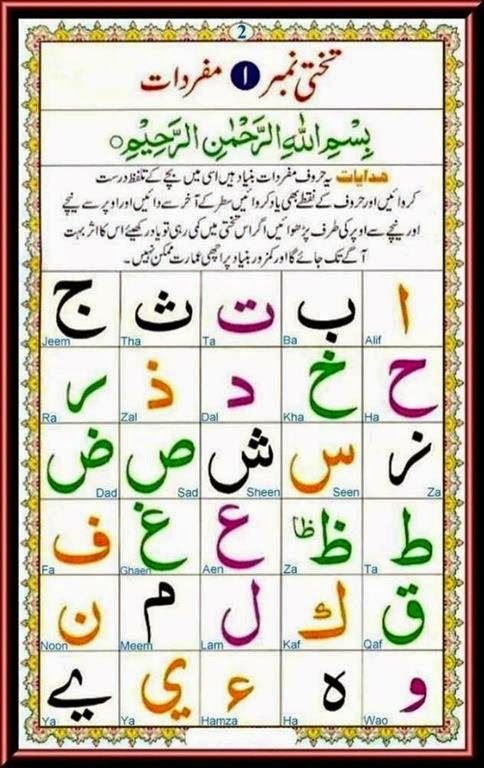 2
تختی نمبر ۱ مفردات
بِسْمِ اللّٰهِ الرَّحْمٰنِ الرَّحِیْمِ
ھدایات یہ حروف مفردات بنیاد ہیں اسی میں بچے کے تلفظ درست
کروائیں اور حروف کے نقطے بھی یاد کروائیں سطر کے آخر سے دائیں اور اوپر سے نیچے
اور نیچے سے اوپر کی طرف پڑھوائیں اگر اس تختی میں کمی رہی تو یاد رکھیئے اس کا اثر بہت
آگے تک جائے گا اور کمزور بنیاد پر اچھی عمارت ممکن نہیں۔
ا ب ت ث ج
Alif Ba Ta Tha Jeem
ح خ د ذ ر
Ha Kha Dal Zal Ra
ز س ش ص ض
Za Seen Sheen Sad Dad
ط ظ ظا ع غ ف
Ta Za Aen Ghaen Fa
ق ك ل م ن
Qaf Kaf Lam Meem Noon
و ه ء ي ے
Wao Ha Hamza Ya Ya